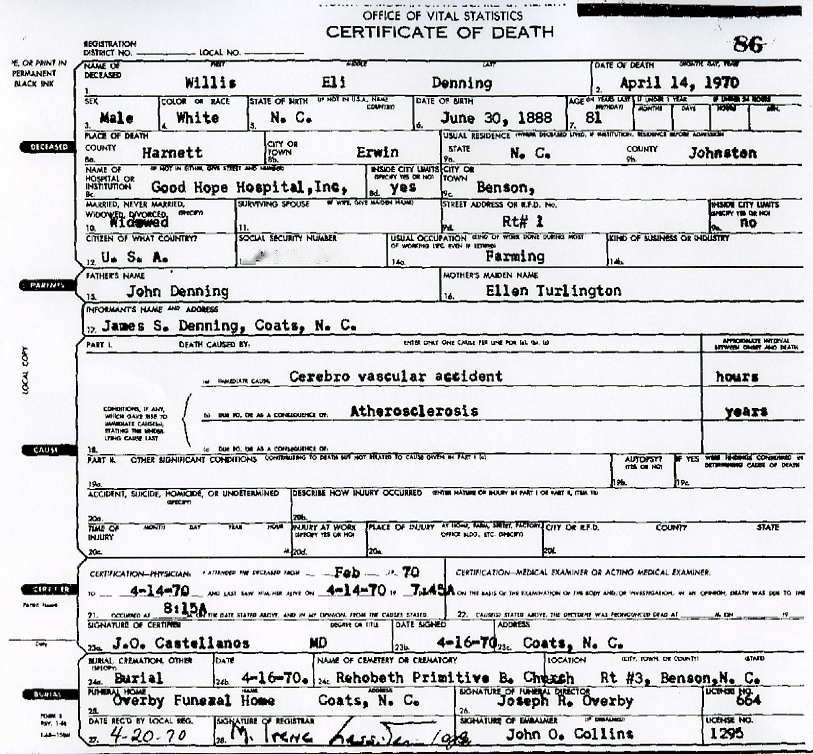 OFFICE OF VITAL STATISTICS
CERTIFICATE OF DEATH
86
REGISTRATION DISTRICT NO. LOCAL NO.
PE, OR PRINT IN PERMANENT BLACK INK
NAME OF DECEASED FIRST MIDDLE LAST DATE OF DEATH (MONTH, DAY, YEAR)
1. Willis Eli Denning 2. April 14, 1970
SEX COLOR OR RACE STATE OF BIRTH (IF NOT IN U.S.A., NAME COUNTRY) DATE OF BIRTH AGE (IN YEARS LAST BIRTHDAY) IF UNDER 1 YEAR IF UNDER 24 HOURS
MONTHS DAYS HOURS MIN.
3. Male 4. White 5. N. C. 6. June 30, 1888 7. 81
DECEASED
PLACE OF DEATH USUAL RESIDENCE (WHERE DECEASED LIVED, IF INSTITUTION, RESIDENCE BEFORE ADMISSION)
COUNTY CITY OR TOWN STATE COUNTY
8a. Harnett 8b. Erwin 9a. N. C. 9b. Johnston
NAME OF HOSPITAL OR INSTITUTION (IF NOT IN EITHER, GIVE STREET AND NUMBER) INSIDE CITY LIMITS (SPECIFY YES OR NO) CITY OR TOWN
8c. Good Hope Hospital, Inc, 8d. yes 9c. Benson,
MARRIED, NEVER MARRIED, WIDOWED, DIVORCED, (SPECIFY) SURVIVING SPOUSE (IF WIFE, GIVE MAIDEN NAME) STREET ADDRESS OR R.F.D. NO. INSIDE CITY LIMITS (SPECIFY YES OR NO)
10. Widowed 11. 9d. Rt# 1 9e. no
CITIZEN OF WHAT COUNTRY? SOCIAL SECURITY NUMBER USUAL OCCUPATION (KIND OF WORK DONE DURING MOST OF WORKING LIFE, EVEN IF RETIRED) KIND OF BUSINESS OR INDUSTRY
12. U. S. A. 14a. Farming 14b.
PARENTS
FATHER'S NAME MOTHER'S MAIDEN NAME
15. John Denning 16. Ellen Turlington
INFORMANT'S NAME AND ADDRESS
17. James S. Denning, Coats, N. C.
LOCAL COPY
PART I. DEATH CAUSED BY: ENTER ONLY ONE CAUSE PER LINE FOR (a), (b), (c) APPROXIMATE INTERVAL BETWEEN ONSET AND DEATH
(a) IMMEDIATE CAUSE Cerebro vascular accident hours
CONDITIONS, IF ANY, WHICH GAVE RISE TO IMMEDIATE CAUSE(a), STATING THE UNDERLYING CAUSE LAST
(b) DUE TO, OR AS A CONSEQUENCE OF: Atherosclerosis years
18. (c) DUE TO, OR AS A CONSEQUENCE OF:
CAUSE
PART II. OTHER SIGNIFICANT CONDITIONS (CONTRIBUTING TO DEATH BUT NOT RELATED TO CAUSE GIVEN IN PART I (a) AUTOPSY? (YES OR NO) IF YES WERE FINDINGS CONSIDERED IN DETERMINING CAUSE OF DEATH
19a. 19b. 19c.
ACCIDENT, SUICIDE, HOMICIDE, OR UNDETERMINED (SPECIFY) DESCRIBE HOW INJURY OCCURRED (ENTER NATURE OF INJURY IN PART I OR PART II, ITEM 18)
20a. 20b.
TIME OF INJURY MONTH DAY YEAR HOUR INJURY AT WORK (SPECIFY YES OR NO) PLACE OF INJURY AT HOME, FARM, STREET, FACTORY, OFFICE BLDG., ETC. (SPECIFY) CITY OR R.F.D. COUNTY STATE
20c. M. 20d. 20e. 20f.
CERTIFICATION—PHYSICIAN: I ATTENDED THE DECEASED FROM Feb 19 70 CERTIFICATION—MEDICAL EXAMINER OR ACTING MEDICAL EXAMINER:
CERTIFIER
TO 4-14-70 AND LAST SAW HIM/HER ALIVE ON 4-14-70 19 7:45A ON THE BASIS OF THE EXAMINATION OF THE BODY AND/OR INVESTIGATION, IN MY OPINION, DEATH WAS DUE TO THE
21. OCCURRED AT 8:15A ON THE DATE STATED ABOVE, AND IN MY OPINION, FROM THE CAUSES STATED 22. CAUSE(S) STATED ABOVE, THE DECEDENT WAS PRONOUNCED DEAD AT M. ON 19
SIGNATURE OF CERTIFIER DEGREE OR TITLE DATE SIGNED ADDRESS
23a. J.O. Castellanos MD 23b. 4-16-70 23c. Coats, N. C.
BURIAL, CREMATION, OTHER (SPECIFY) DATE NAME OF CEMETERY OR CREMATORY LOCATION (CITY, TOWN, OR COUNTY) (STATE)
24a. Burial 24b. 4-16-70. 24c. Rehobeth Primitive B. Church Rt #3, Benson, N. C.
BURIAL
FUNERAL HOME NAME ADDRESS SIGNATURE OF FUNERAL DIRECTOR LICENSE NO.
25. Overby Funeral Home Coats, N. C. 26. Joseph R. Overby 664
DATE REC'D BY LOCAL REG. SIGNATURE OF REGISTRAR SIGNATURE OF EMBALMER (IF EMBALMED) LICENSE NO.
27. 4-20-70 28. M. Irene John O. Collins 1295